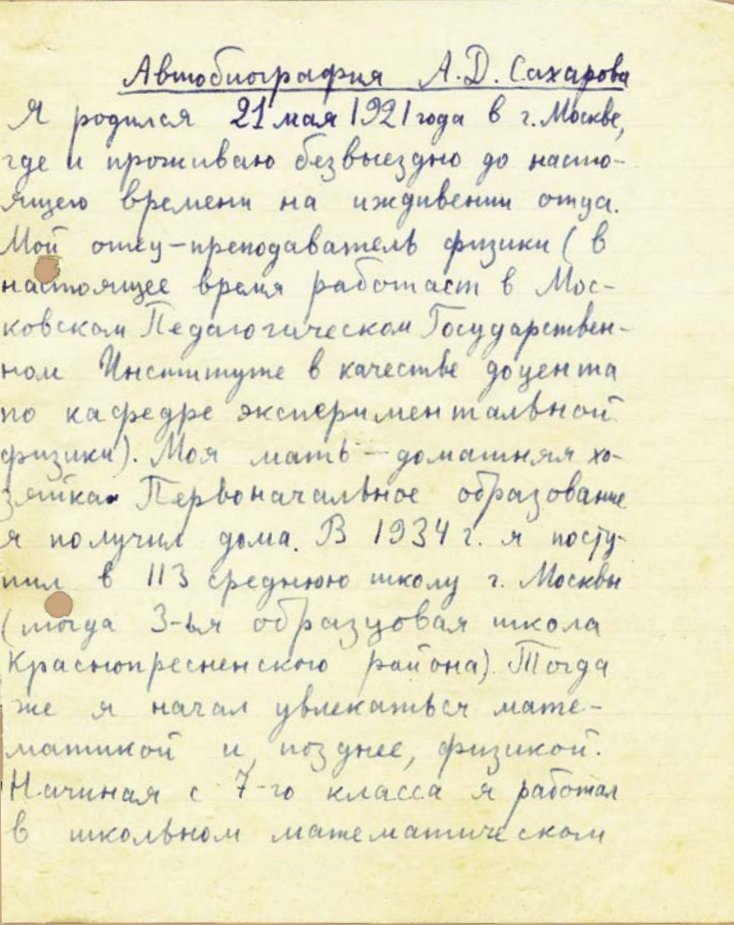 Автобиография А.Д. Сахарова
Я родился 21 мая 1921 года в г. Москве,
где и проживаю безвыездно до насто-
ящего времени на иждивении отца.
Мой отец – преподаватель физики ( в
настоящее время работает в Мос-
ковском Педагогическом Государствен-
ном Институте в качестве доцента
по кафедре экспериментальной
физики). Моя мать – домашняя хо-
зяйка. Первоначальное образование
я получил дома. В 1934 г. я посту-
пил в 113 среднюю школу г. Москвы
(тогда 3-ья образцовая школа
Краснопресненского района). Тогда
же я начал увлекаться мате-
матикой и, позднее, физикой.
Начиная с 7-го класса я работал
в школьном математическом